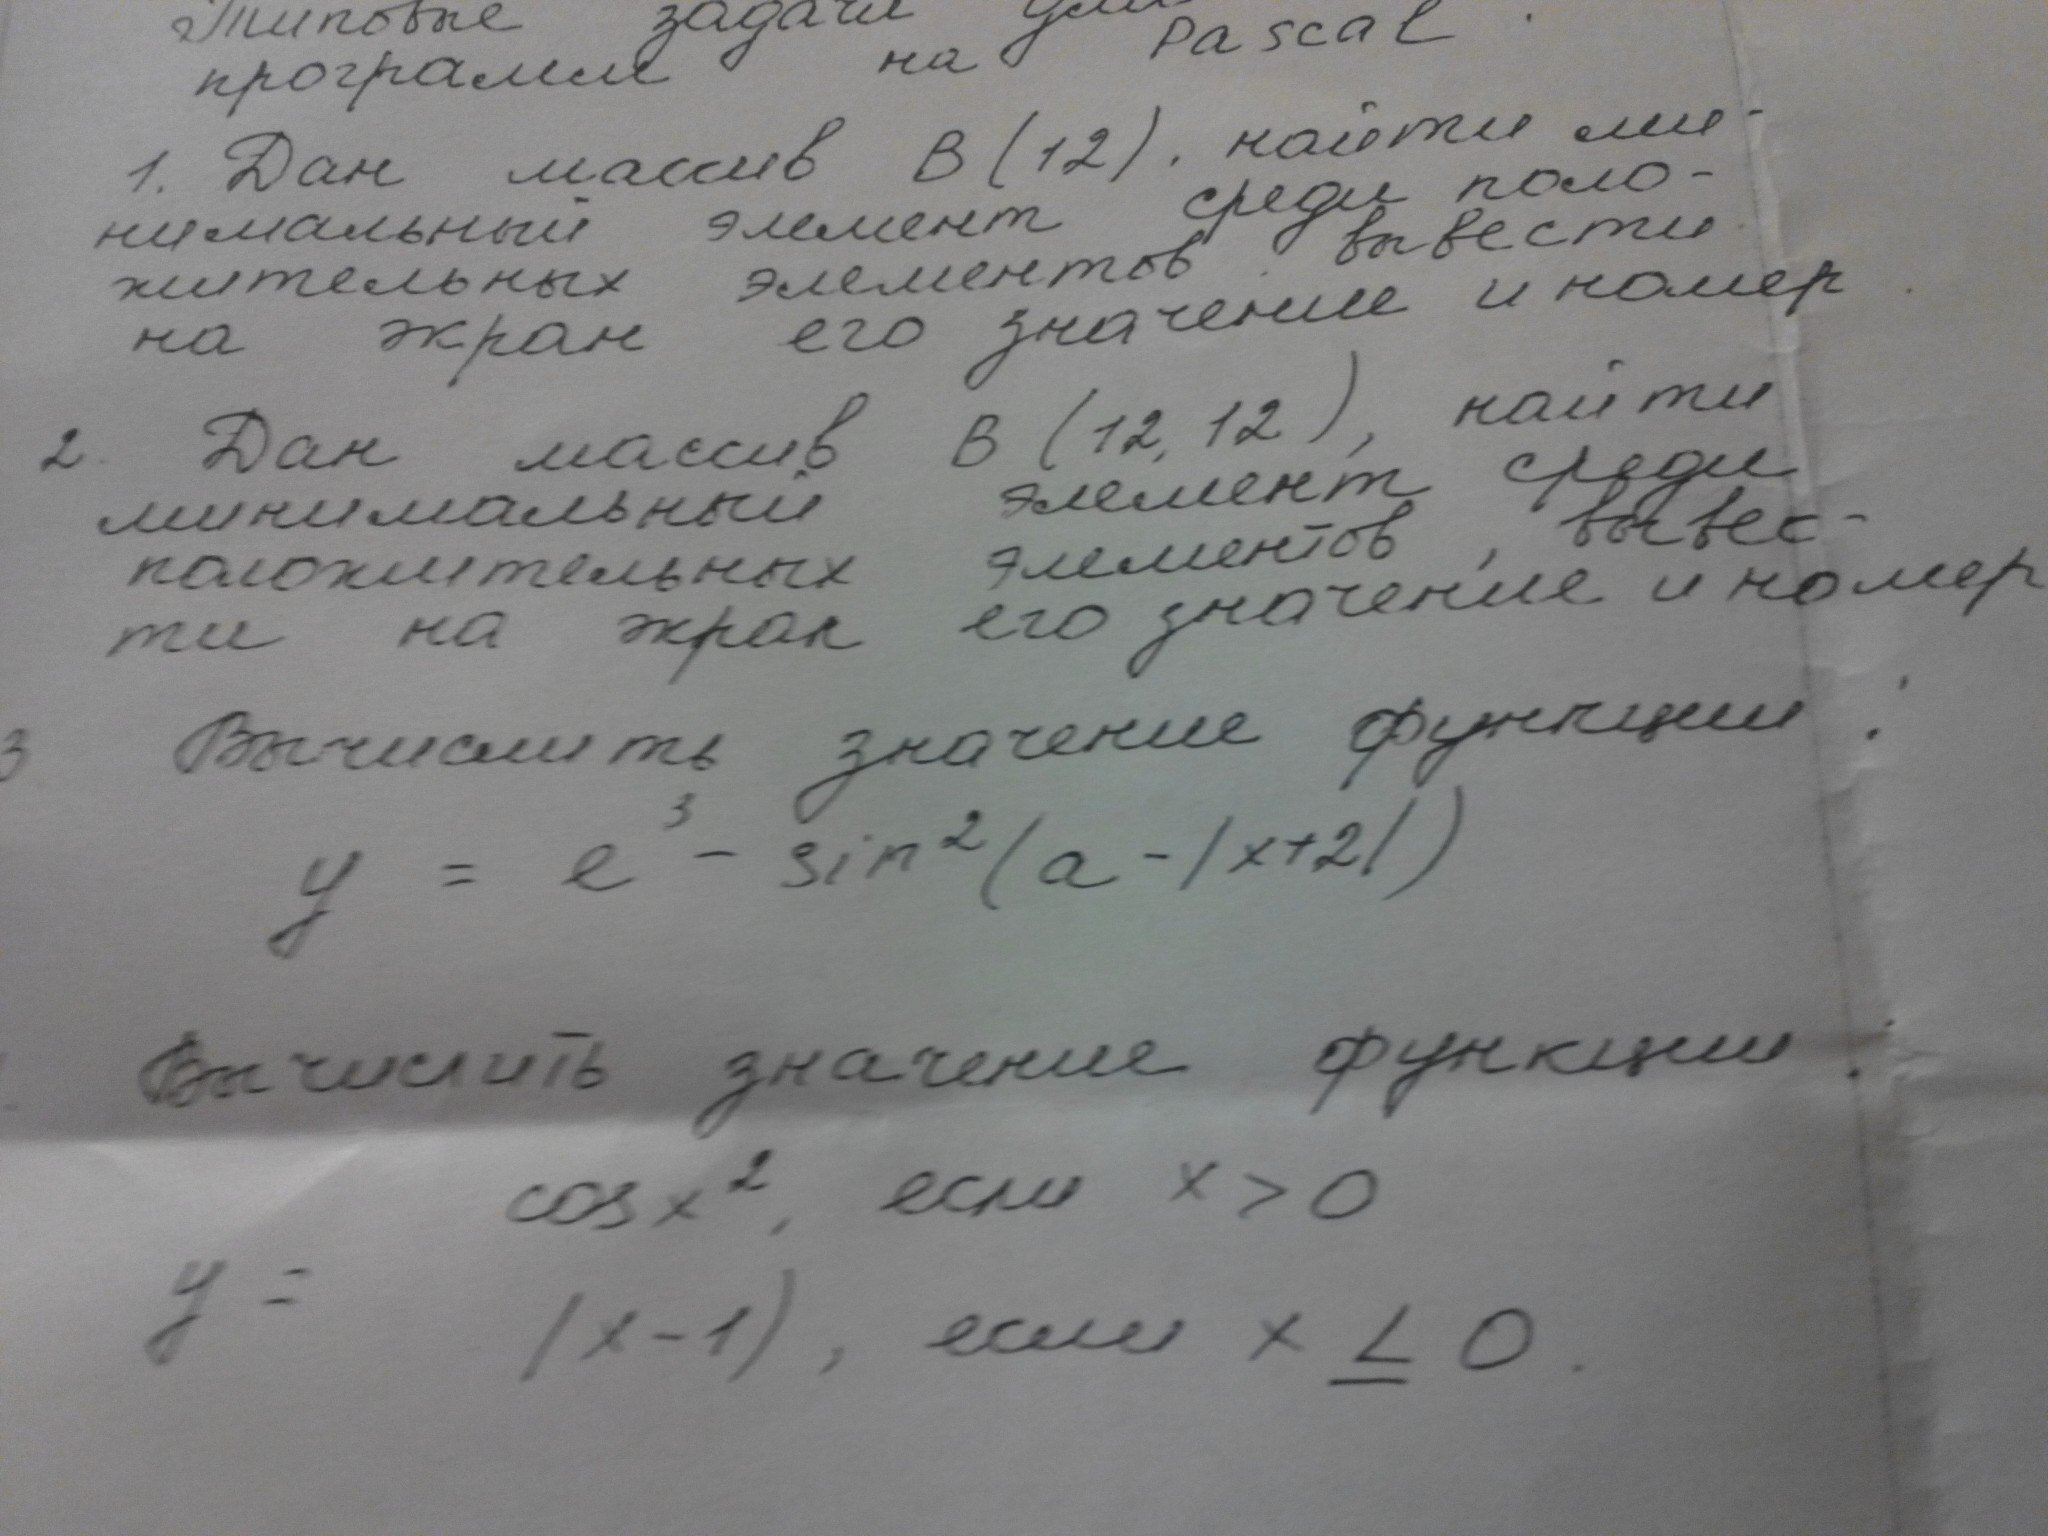 Типовые задачи для
программ на Pascal.
1. Дан массив B(12). найти ми-
нимальный элемент среди поло-
жительных элементов. вывести
на экран его значение и номер.
2. Дан массив B(12,12), найти
минимальный элемент среди
положительных элементов, вывес-
ти на экран его значение и номер
3 Вычислить значение функции:
y = e³ - sin²(a-|x+2|)
Вычислить значение функции:
cos x², если x > 0
y =
|x-1), если x ≤ 0.